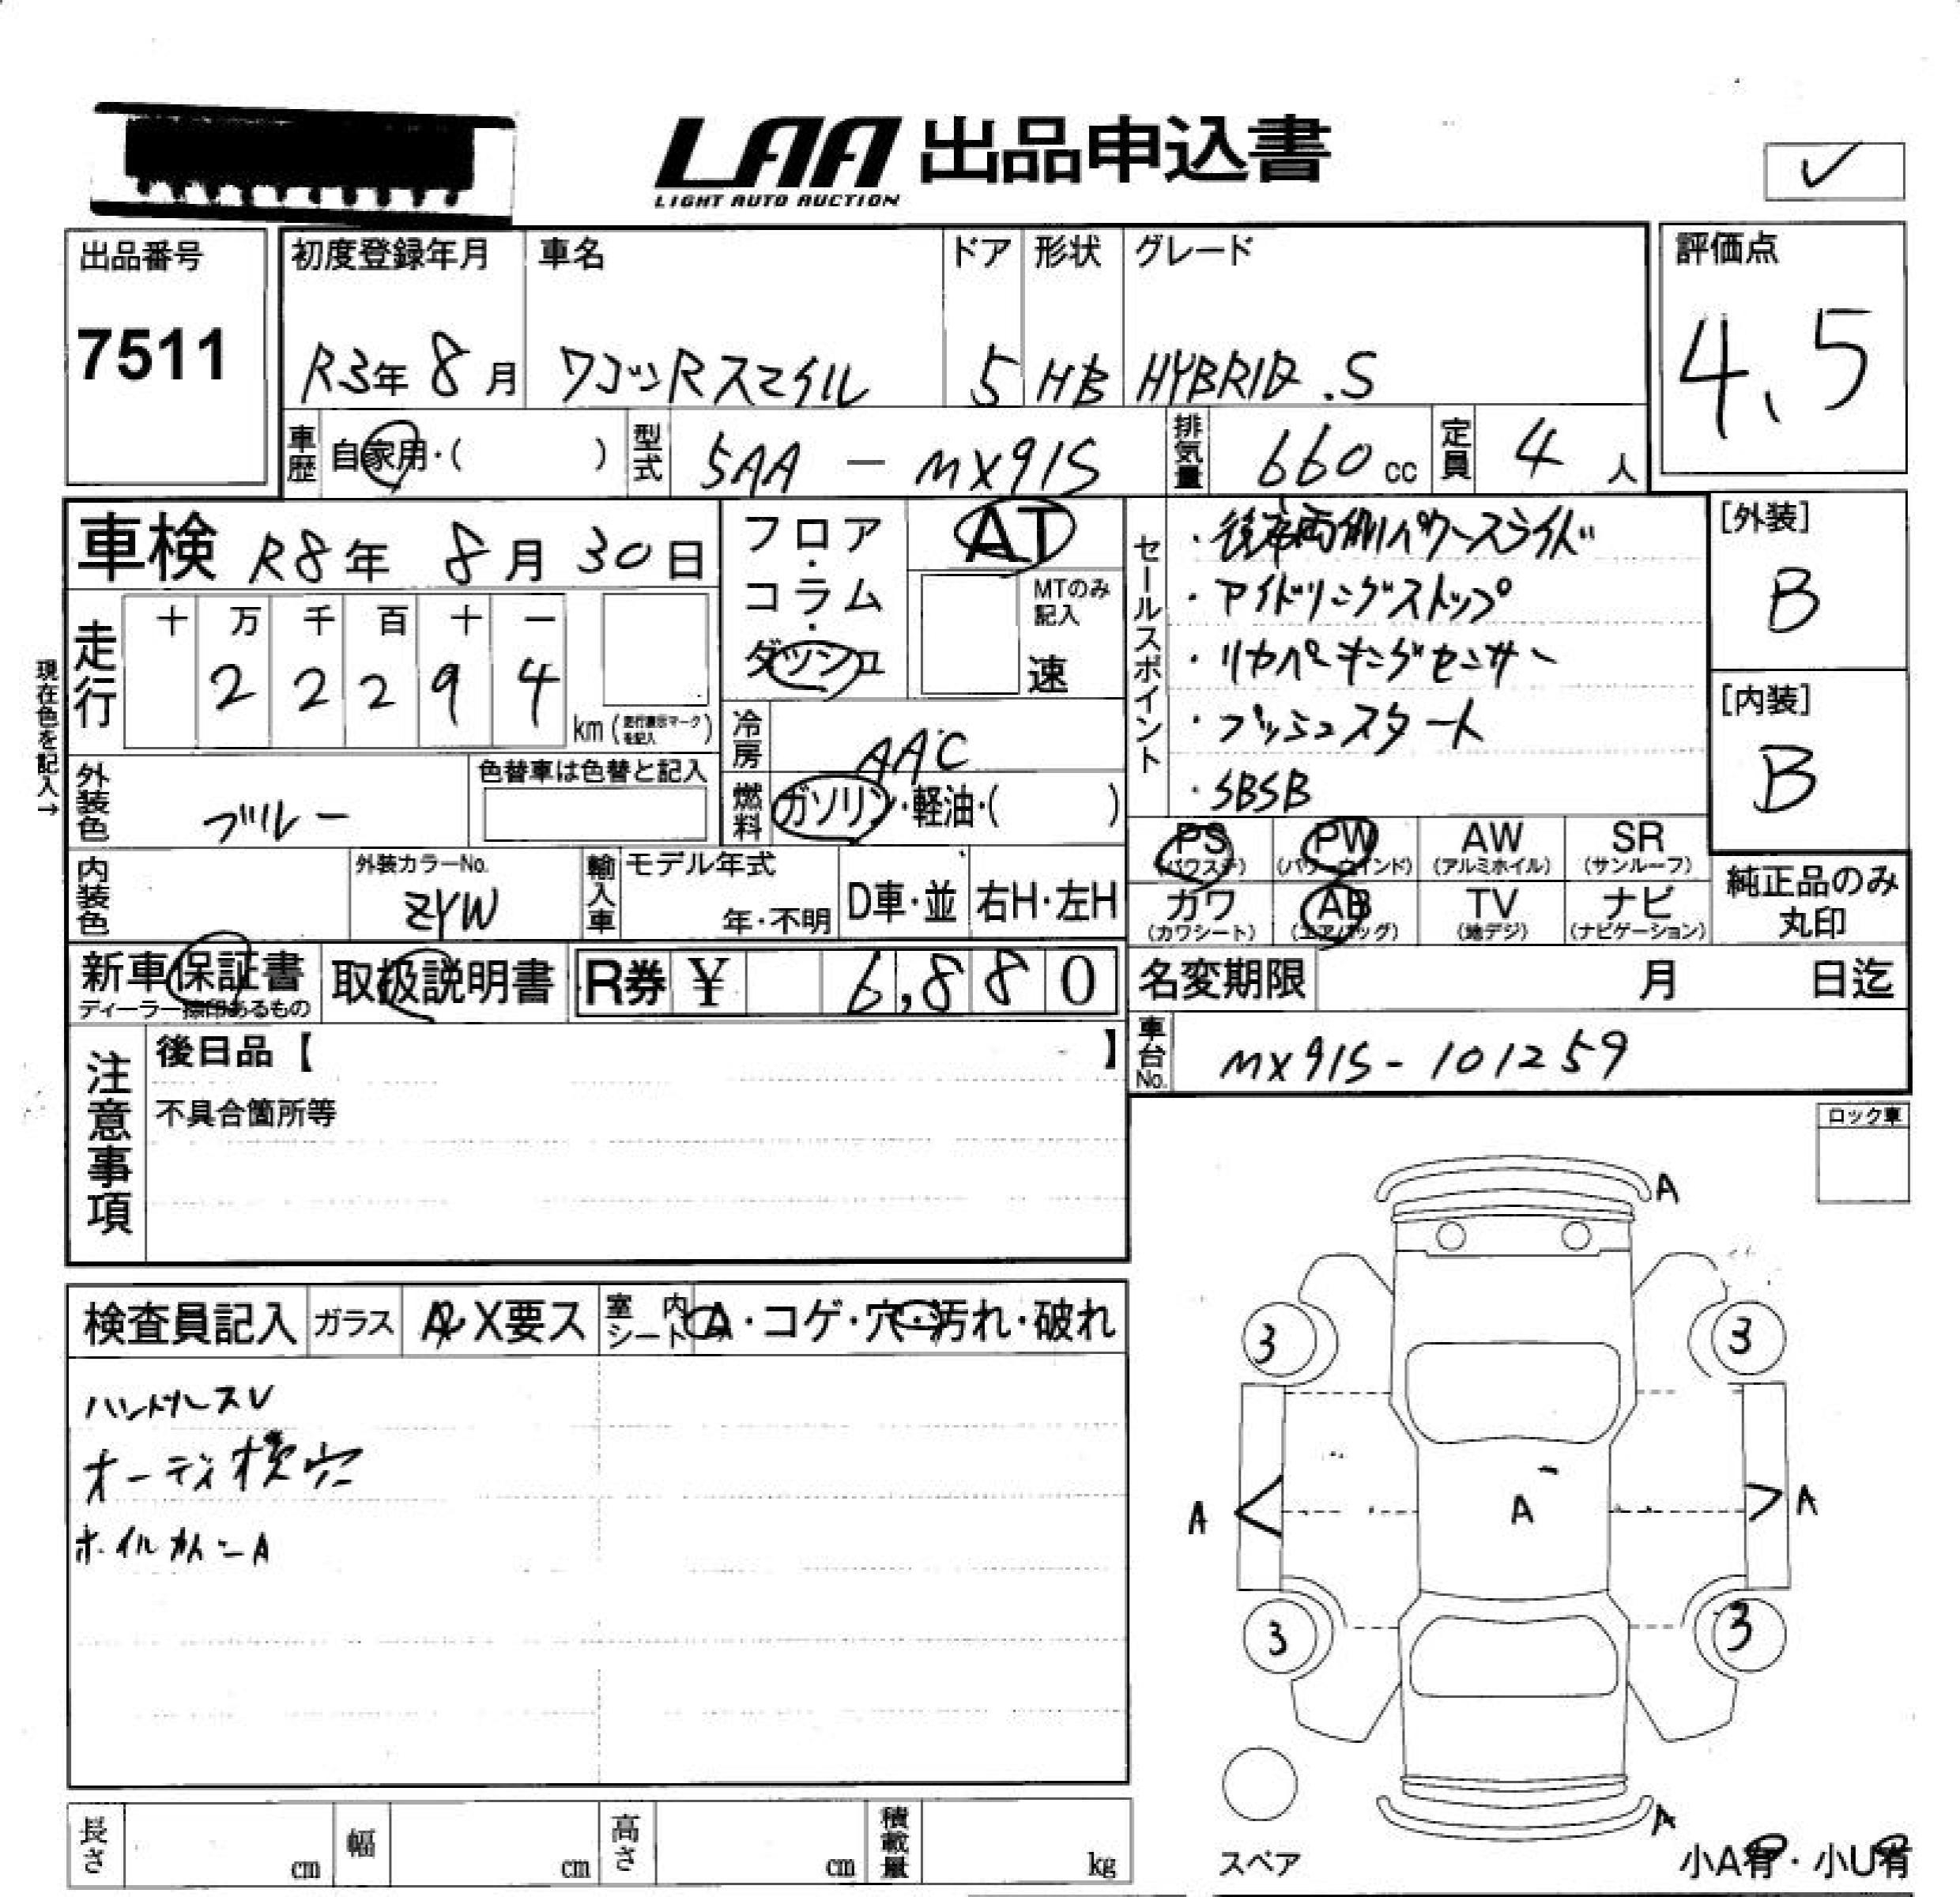 LAA 出品申込書
LIGHT AUTO AUCTION
出品番号
7511
初度登録年月
R3年 8月
車名
ワゴンRスマイル
ドア
5
形状
HB
グレード
HYBRID.S
評価点
4.5
車歴 自家用・( )
型式 5AA - MX91S
排気量 660 cc
定員 4 人
車検 R8年 8月 30日
フロア・コラム・ダッシュ
AT
MTのみ記入
速
セールスポイント
・後席両側パワースライド
・アイドリングストップ
・リヤパーキングセンサー
・プッシュスタート
・SBSB
[外装]
B
[内装]
B
現在色を記入→
走行
十 万 千 百 十 一
2 2 2 9 4
km(走行表示マークを記入)
冷房 AAC
外装色 ブルー
色替車は色替と記入
燃料 ガソリン・軽油・( )
PS (パワステ) PW (パワーウインド) AW (アルミホイル) SR (サンルーフ)
カワ (カワシート) AB (エアバッグ) TV (地デジ) ナビ (ナビゲーション)
純正品のみ丸印
内装色
外装カラーNo.
ZYW
輸入車 モデル年式
年・不明
D車・並
右H・左H
新車保証書
ディーラー捺印あるもの
取扱説明書
R券 ¥ 6,880
名変期限 月 日迄
車台No. MX91S-101259
注意事項
後日品【 】
不具合箇所等
ロック車
検査員記入 ガラス A・X要ス 室内シート A・コゲ・穴・汚れ・破れ
ハンドルスレ
オーディ横穴
ホイルカバーA
A
3 3
A A A
3 3
A
スペア
小A有・小U有
長さ cm 幅 cm 高さ cm 積載量 kg